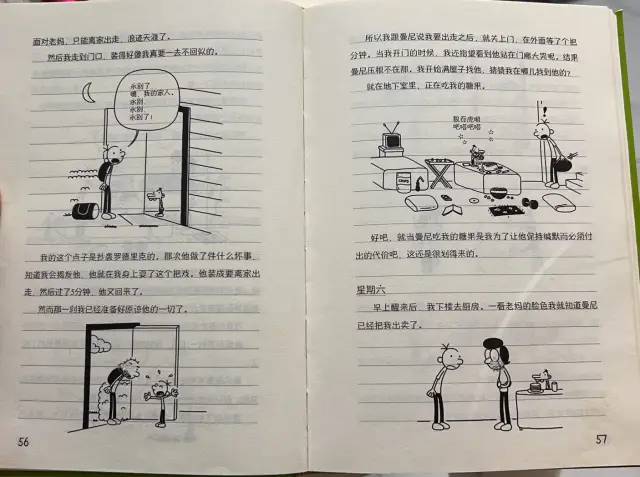 面对老妈，只能离家出走、浪迹天涯了。
然后我走到门口，装得好像我真要一去不回似的。
永别了
噢，我的家人。
永别，
永别，
永别了！
我的这个点子是抄袭罗德里克的，那次他做了件什么坏事，
知道我会揭发他，他就在我身上耍了这个把戏，他装成要离家出
走，然后过了5分钟，他又回来了。
然而那一刹我已经准备好原谅他的一切了。
56
所以我跟曼尼说我要出走之后，就关上门，在外面等了个把
分钟。当我开门的时候，我还指望看到他站在门廊大哭呢，结果
曼尼压根不在那，我开始满屋子找他。猜猜我在哪儿找到他的？
就在地下室里，正在吃我的糖果。
狼吞虎咽
吧嗒吧嗒
好吧，就当曼尼吃我的糖果是我为了让他保持缄默而必须付
出的代价吧，这还是很划得来的。
星期六
早上醒来后，我下楼去厨房，一看老妈的脸色我就知道曼尼
已经把我出卖了。
57